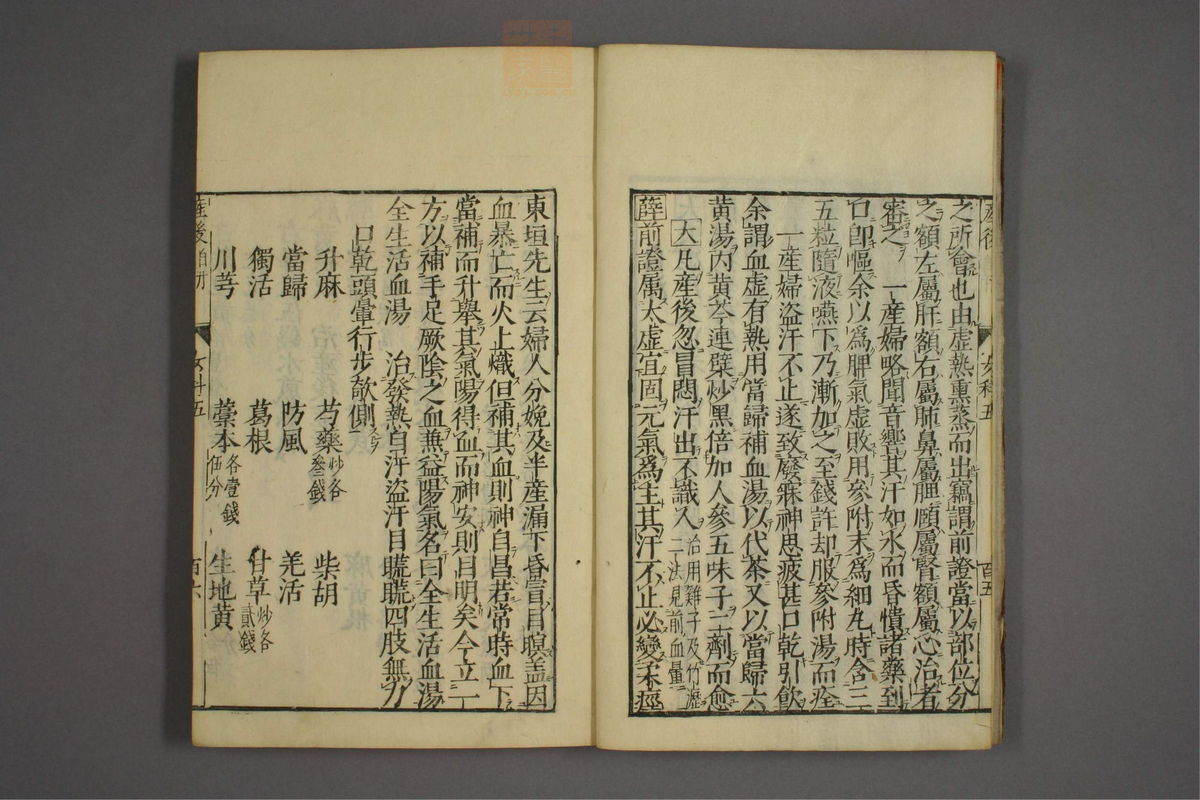 産後
女科五
百五
之所會也由虛熱熏蒸而出竊謂前證當以部位分
之額左屬肝額右屬肺鼻屬脾頤屬腎額屬心治者
審之 一産婦略聞音響其汗如水而昏憒諸藥到
口卽嘔余以爲脾氣虛敗用參附末爲細丸時含三
五粒隨液嚥下乃漸加之至錢許却服參附湯而痊
一産婦盜汗不止遂致廢寐神思疲甚口乾引飲
余謂血虛有熱用當歸補血湯以代茶又以當歸六
黄湯内黄芩連蘗炒黑倍加人參五味子二劑而愈
大凡産後忽冒悶汗出不識人治用雞子及竹瀝二法見前血暈
薛前證属大虛宜固元氣為主其汗不止必變柔痙
東垣先生云婦人分娩及半産漏下昏冒目瞑盖因
血暴亡而火上熾但補其血則神自昌若常時血下
當補而升舉其氣陽得血而神安則目明矣今立一
方以補手足厥陰之血兼益陽氣名曰全生活血湯
全生活血湯 治發熱自汗盜汗目䀮䀮四肢無力
口乾頭暈行步欹側
升麻 芍藥炒各叁錢 柴胡
當歸 防風 羌活
獨活 葛根 甘草炒各貳錢
川芎 藁本各壹錢伍分 生地黄
産後
女科五
百六